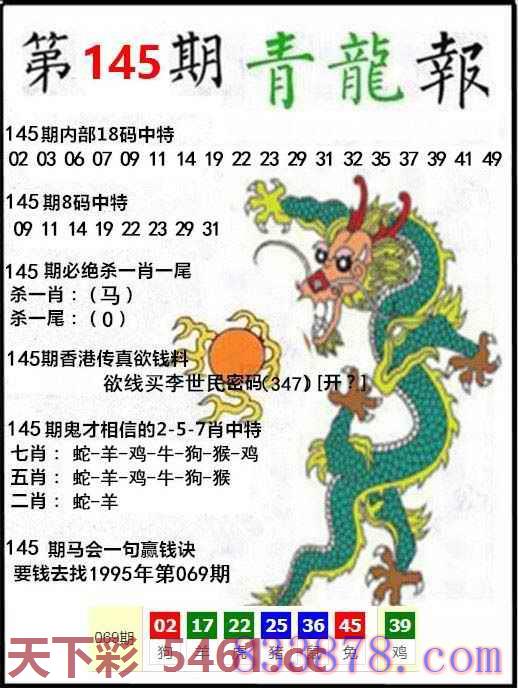 第145期青龍報
145期内部18码中特
02 03 06 07 09 11 14 19 22 23 29 31 32 35 37 39 41 49
145期8码中特
09 11 14 19 22 23 29 31
145期必绝杀一肖一尾
杀一肖：（马）
杀一尾：（0）
145期香港传真欲钱料
欲线买李世民密码(347)[开?]
145期鬼才相信的2-5-7肖中特
七肖：蛇-羊-鸡-牛-狗-猴-鸡
五肖：蛇-羊-鸡-狗-猴
二肖：蛇-羊
145期马会一句赢钱诀
要钱去找1995年第069期
069期 02 17 22 25 36 45 39
狗 羊 虎 猪 鼠 兔 鸡
天下彩 5461.cc